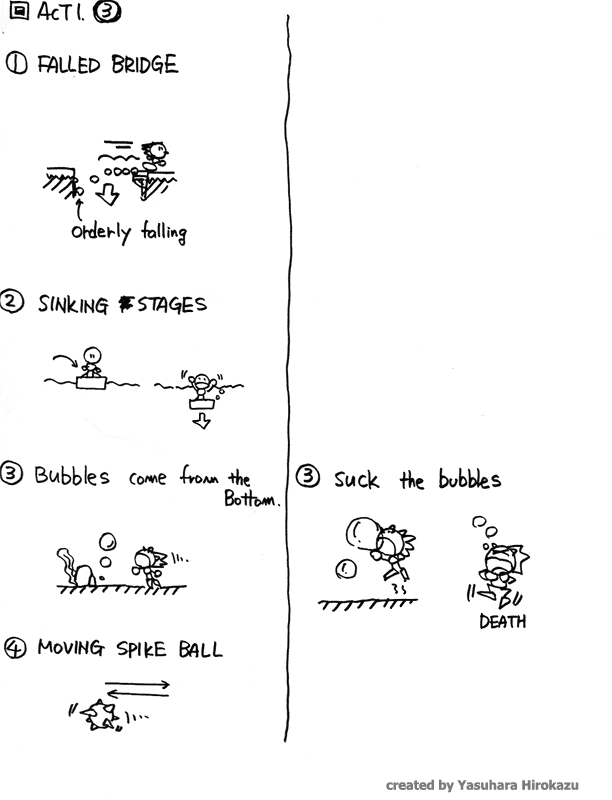 回 ACT 1. ③
① FALLED BRIDGE
orderly falling
② SINKING STAGES
③ Bubbles come from the
Bottom.
④ MOVING SPIKE BALL
③ Suck the bubbles
DEATH
created by Yasuhara Hirokazu